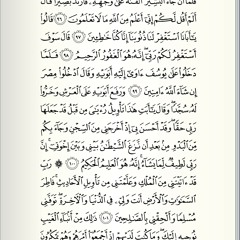 فَلَمَّا أَن جَاءَ الْبَشِيرُ أَلْقَاهُ عَلَىٰ وَجْهِهِ فَارْتَدَّ بَصِيرًا قَالَ
أَلَمْ أَقُل لَّكُمْ إِنِّي أَعْلَمُ مِنَ اللَّهِ مَا لَا تَعْلَمُونَ ٩٦ قَالُوا
يَا أَبَانَا اسْتَغْفِرْ لَنَا ذُنُوبَنَا إِنَّا كُنَّا خَاطِئِينَ ٩٧ قَالَ سَوْفَ
أَسْتَغْفِرُ لَكُمْ رَبِّي إِنَّهُ هُوَ الْغَفُورُ الرَّحِيمُ ٩٨ فَلَمَّا
دَخَلُوا عَلَىٰ يُوسُفَ آوَىٰ إِلَيْهِ أَبَوَيْهِ وَقَالَ ادْخُلُوا مِصْرَ
إِن شَاءَ اللَّهُ آمِنِينَ ٩٩ وَرَفَعَ أَبَوَيْهِ عَلَى الْعَرْشِ وَخَرُّوا
لَهُ سُجَّدًا وَقَالَ يَا أَبَتِ هَٰذَا تَأْوِيلُ رُؤْيَايَ مِن قَبْلُ قَدْ جَعَلَهَا
رَبِّي حَقًّا وَقَدْ أَحْسَنَ بِي إِذْ أَخْرَجَنِي مِنَ السِّجْنِ وَجَاءَ بِكُم
مِّنَ الْبَدْوِ مِن بَعْدِ أَن نَّزَغَ الشَّيْطَانُ بَيْنِي وَبَيْنَ إِخْوَتِي إِنَّ
رَبِّي لَطِيفٌ لِّمَا يَشَاءُ إِنَّهُ هُوَ الْعَلِيمُ الْحَكِيمُ ١٠٠ رَبِّ
قَدْ آتَيْتَنِي مِنَ الْمُلْكِ وَعَلَّمْتَنِي مِن تَأْوِيلِ الْأَحَادِيثِ فَاطِرَ
السَّمَاوَاتِ وَالْأَرْضِ أَنتَ وَلِيِّي فِي الدُّنْيَا وَالْآخِرَةِ تَوَفَّنِي
مُسْلِمًا وَأَلْحِقْنِي بِالصَّالِحِينَ ١٠١ ذَٰلِكَ مِنْ أَنبَاءِ الْغَيْبِ
نُوحِيهِ إِلَيْكَ وَمَا كُنتَ لَدَيْهِمْ إِذْ أَجْمَعُوا أَمْرَهُمْ وَهُمْ يَمْكُرُونَ